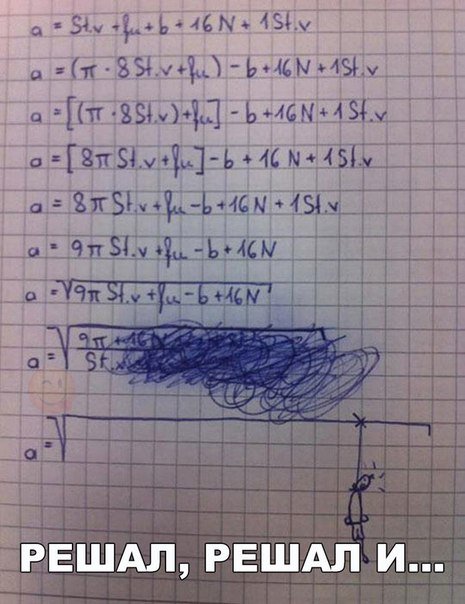 a = St.v + fu + b + 16N + 1St.v
a = (π · 8St.v + fu) - b + 16N + 1St.v
a = [(π · 8St.v) + fu] - b + 16N + 1St.v
a = [8π St.v + fu] - b + 16N + 1St.v
a = 8π St.v + fu - b + 16N + 1St.v
a = 9π St.v + fu - b + 16N
a = √9π St.v + fu - b + 16N
a = √9π + 16N
St.
a = √
РЕШАЛ, РЕШАЛ И...